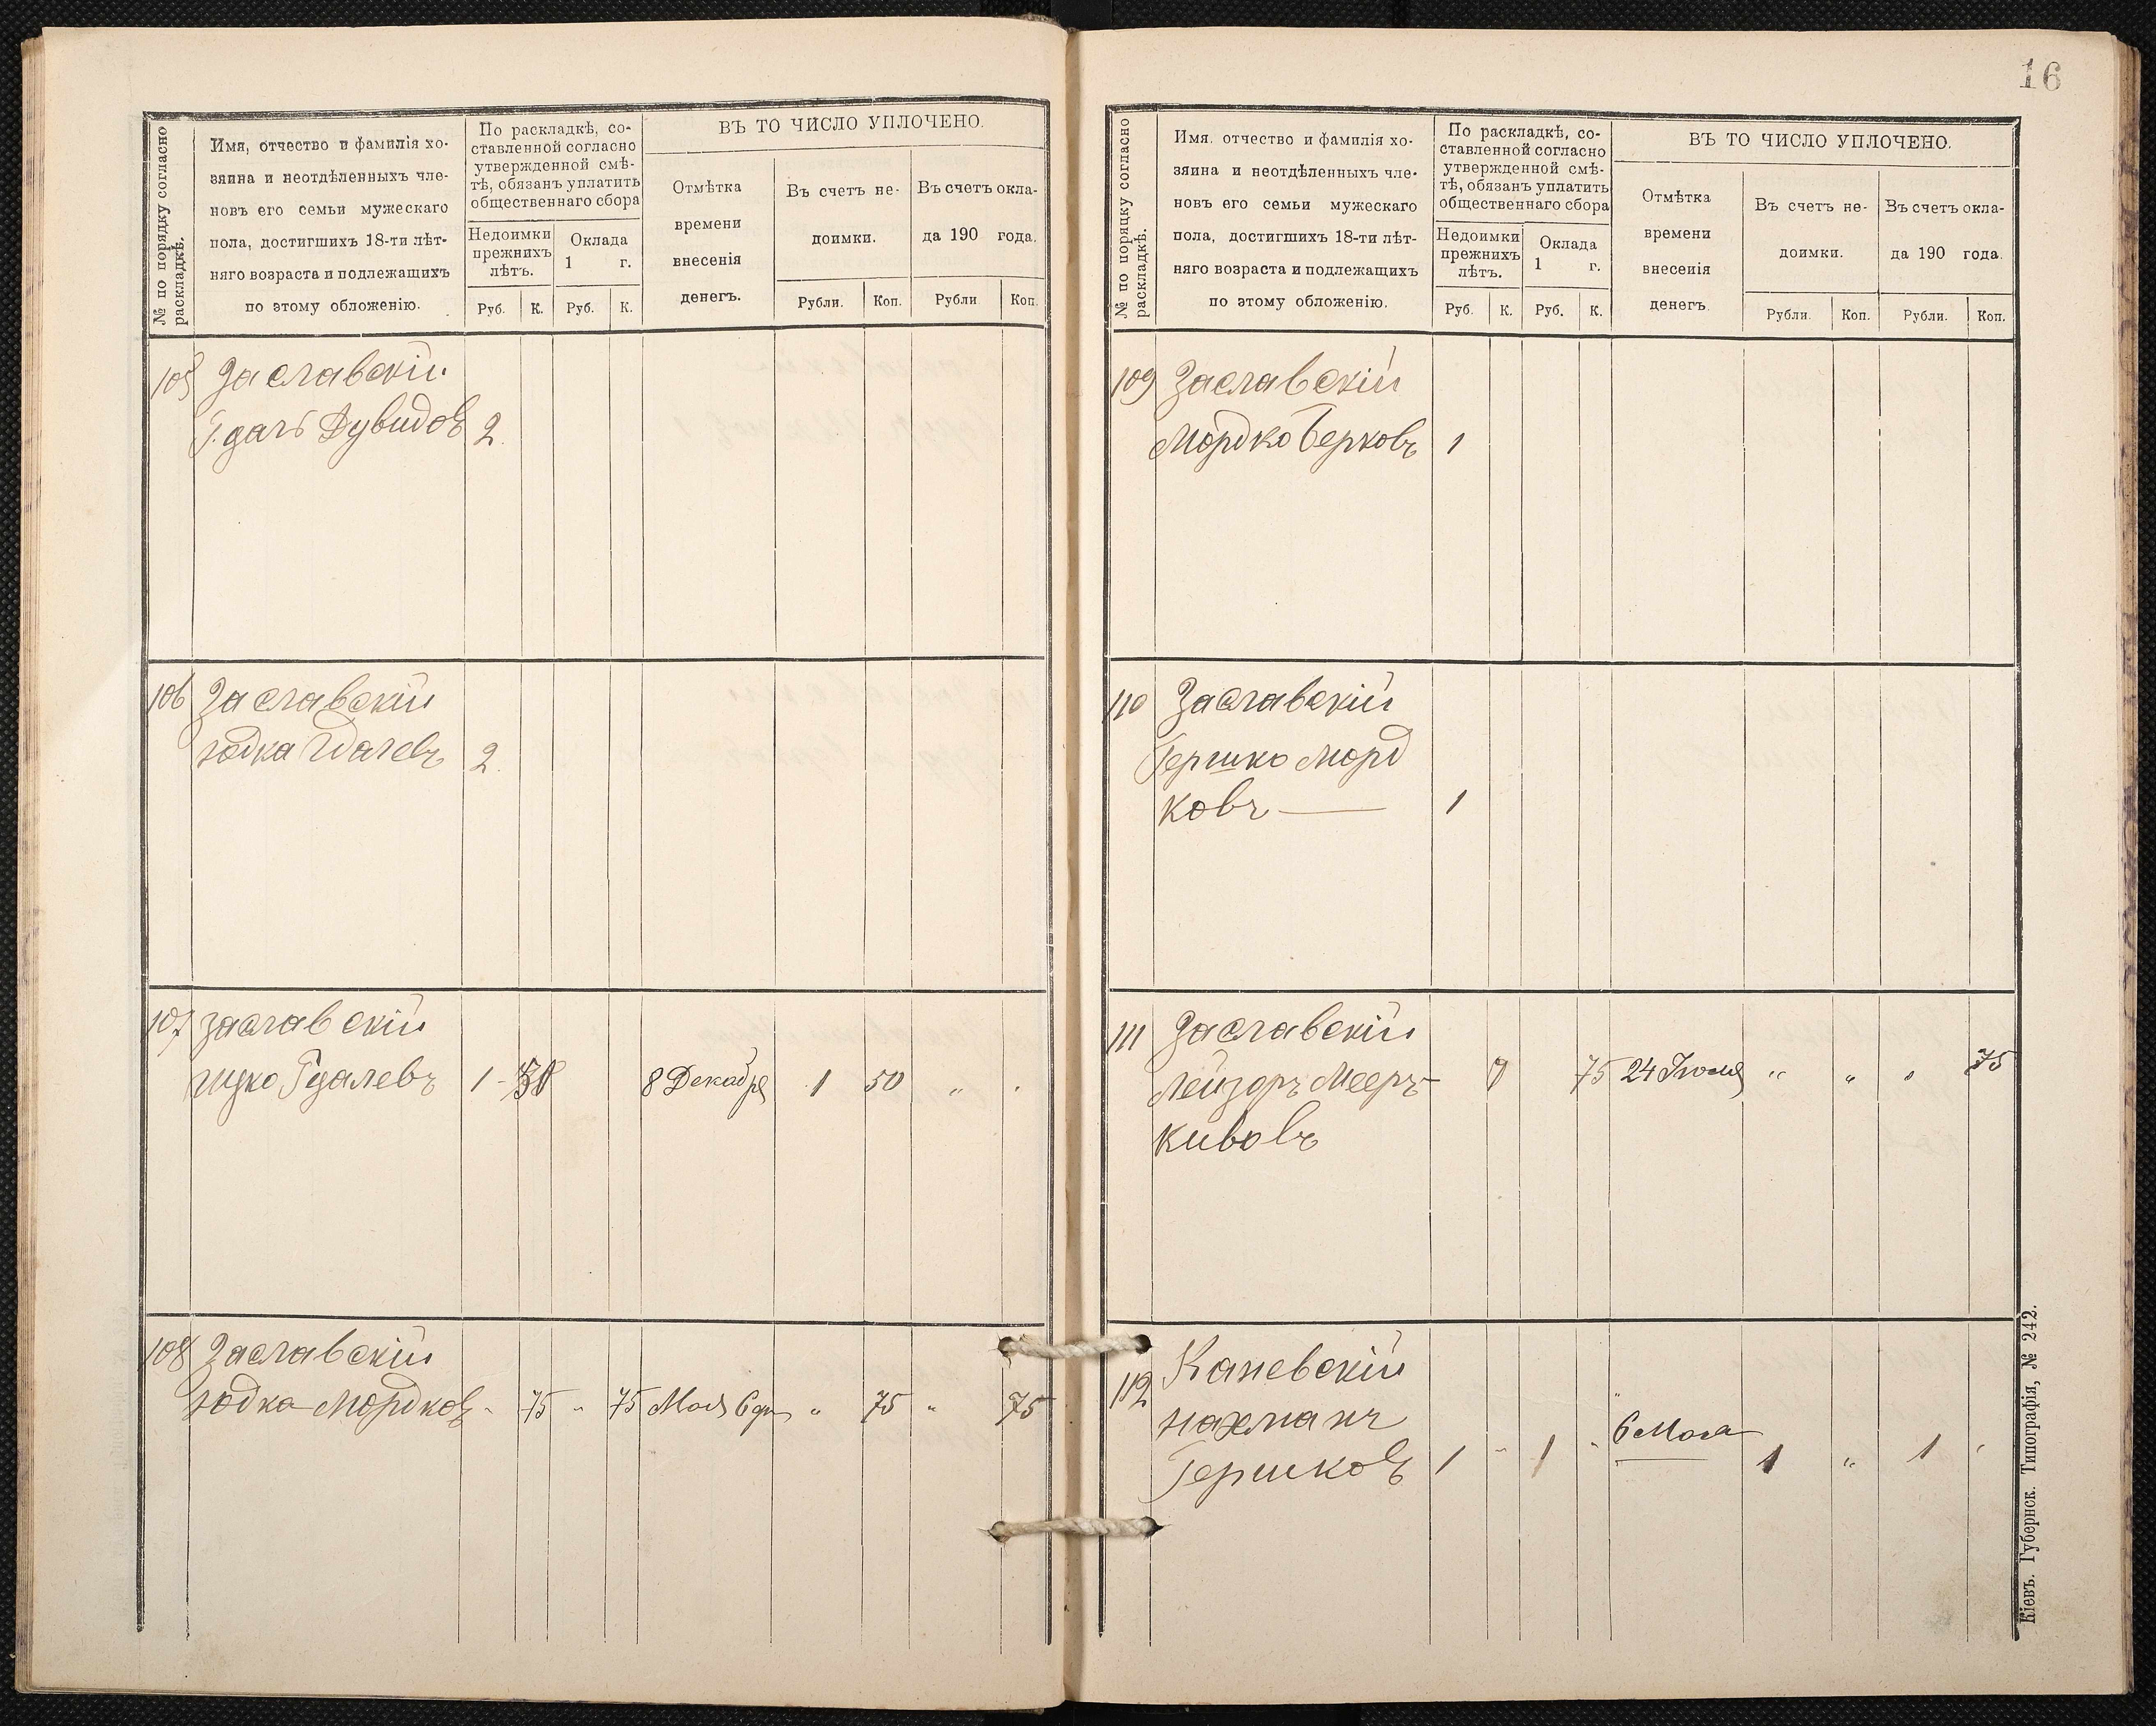 № по порядку согласно
раскладкѣ.
Имя, отчество и фамилія хо-
зяина и неотдѣленныхъ чле-
новъ его семьи мужескаго
пола, достигшихъ 18-ти лѣт-
няго возраста и подлежащихъ
по этому обложенію.
По раскладкѣ, со-
ставленной согласно
утвержденной смѣ-
тѣ, обязанъ уплатить
общественнаго сбора
Недоимки
прежнихъ
лѣтъ.
Оклада
1 г.
Руб. К. Руб. К.
ВЪ ТО ЧИСЛО УПЛОЧЕНО.
Отмѣтка
времени
внесенія
денегъ.
Въ счетъ не-
доимки.
Въ счетъ окла-
да 190 года.
Рубли. Коп. Рубли Коп.
105 Заславскій
Гдаль Дувидовъ 2
106 Заславскій
Юдка Гдалевъ 2
107 Заславскій
Ицко Гдалевъ 1 - 50 8 Декабря 1 50 „
108 Заславскій
Юдка Мордковъ - 75 „ 75 Мая 6 дня „ 75 „ 75
16
№ по порядку согласно
раскладкѣ.
Имя. отчество и фамилія хо-
зяина и неотдѣленныхъ чле-
новъ его семьи мужескаго
пола, достигшихъ 18-ти лѣт-
няго возраста и подлежащихъ
по этому обложенію.
По раскладкѣ, со-
ставленной согласно
утвержденной смѣ-
тѣ, обязанъ уплатить
общественнаго сбора
Недоимки
прежнихъ
лѣтъ.
Оклада
1 г.
Руб. К. Руб. К.
ВЪ ТО ЧИСЛО УПЛОЧЕНО.
Отмѣтка
времени
внесенія
денегъ.
Въ счетъ не-
доимки.
Въ счетъ окла-
да 190 года.
Рубли. Коп. Рубли. Коп.
109 Заславскій
Мордко Берковъ 1
110 Заславскій
Гершко Морд
ковъ — 1
111 Заславскій
Лейзоръ Мееръ- 75 24 Іюля „ „ „ 75
кивовъ
112 Каневскій
Нахманъ
Гершковъ 1 - 1 - 6 Мая 1 „ 1
Кіевъ. Губернск. Типографія, № 242.